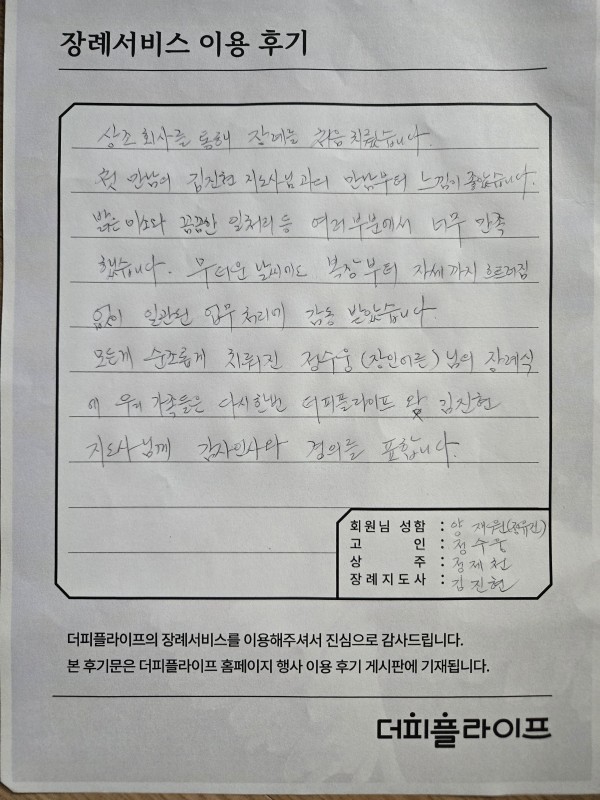 장례서비스 이용 후기
상조회사를 통해 장례를 처음 치뤘습니다.
첫 만남의 김진현 지도사님과의 만남부터 느낌이 좋았습니다.
밝은 미소와 꼼꼼한 일처리 등 여러부분에서 너무 만족
했습니다. 무더운 날씨에도 복장부터 자세까지 흐트러짐
없이 일관된 업무처리에 감동 받았습니다.
모든게 순조롭게 치뤄진 정수웅(장인어른)님의 장례식
에 우리 가족들은 다시한번 더피플라이프 와 김진현
지도사님께 감사인사와 경의를 표합니다.
회원님 성함 : 양재원(정유진)
고 인 : 정수웅
상 주 : 정제천
장례지도사 : 김진현
더피플라이프의 장례서비스를 이용해주셔서 진심으로 감사드립니다.
본 후기문은 더피플라이프 홈페이지 행사 이용 후기 게시판에 기재됩니다.
더피플라이프